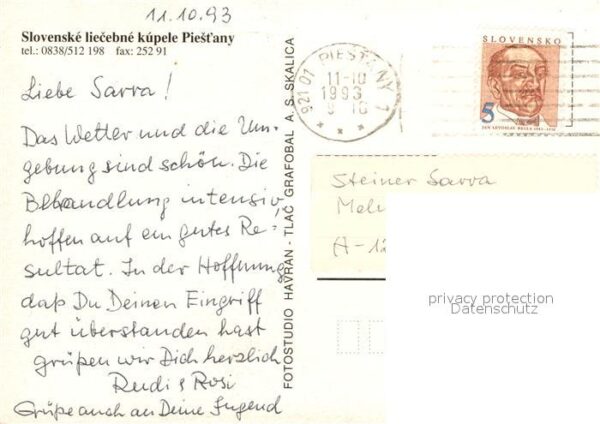 11.10.93
Slovenské liečebné kúpele Piešťany
tel.: 0838/512 198 fax: 252 91
Liebe Sarra!
Das Wetter und die Um-
gebung sind schön. Die
Behandlung intensiv,
hoffen auf ein gutes Re-
sultat. In der Hoffnung
daß Du Deinen Eingriff
gut überstanden hast
grüßen wir Dich herzlich
Rudi & Rosi
Grüße auch an Deine Jugend
FOTOSTUDIO HAVRAN - TLAČ GRAFOBAL A. S. SKALICA
921 01 PIEŠŤANY 1
11-10
1993
SLOVENSKO
5
Steiner Sarra
A-12
privacy protection
Datenschutz